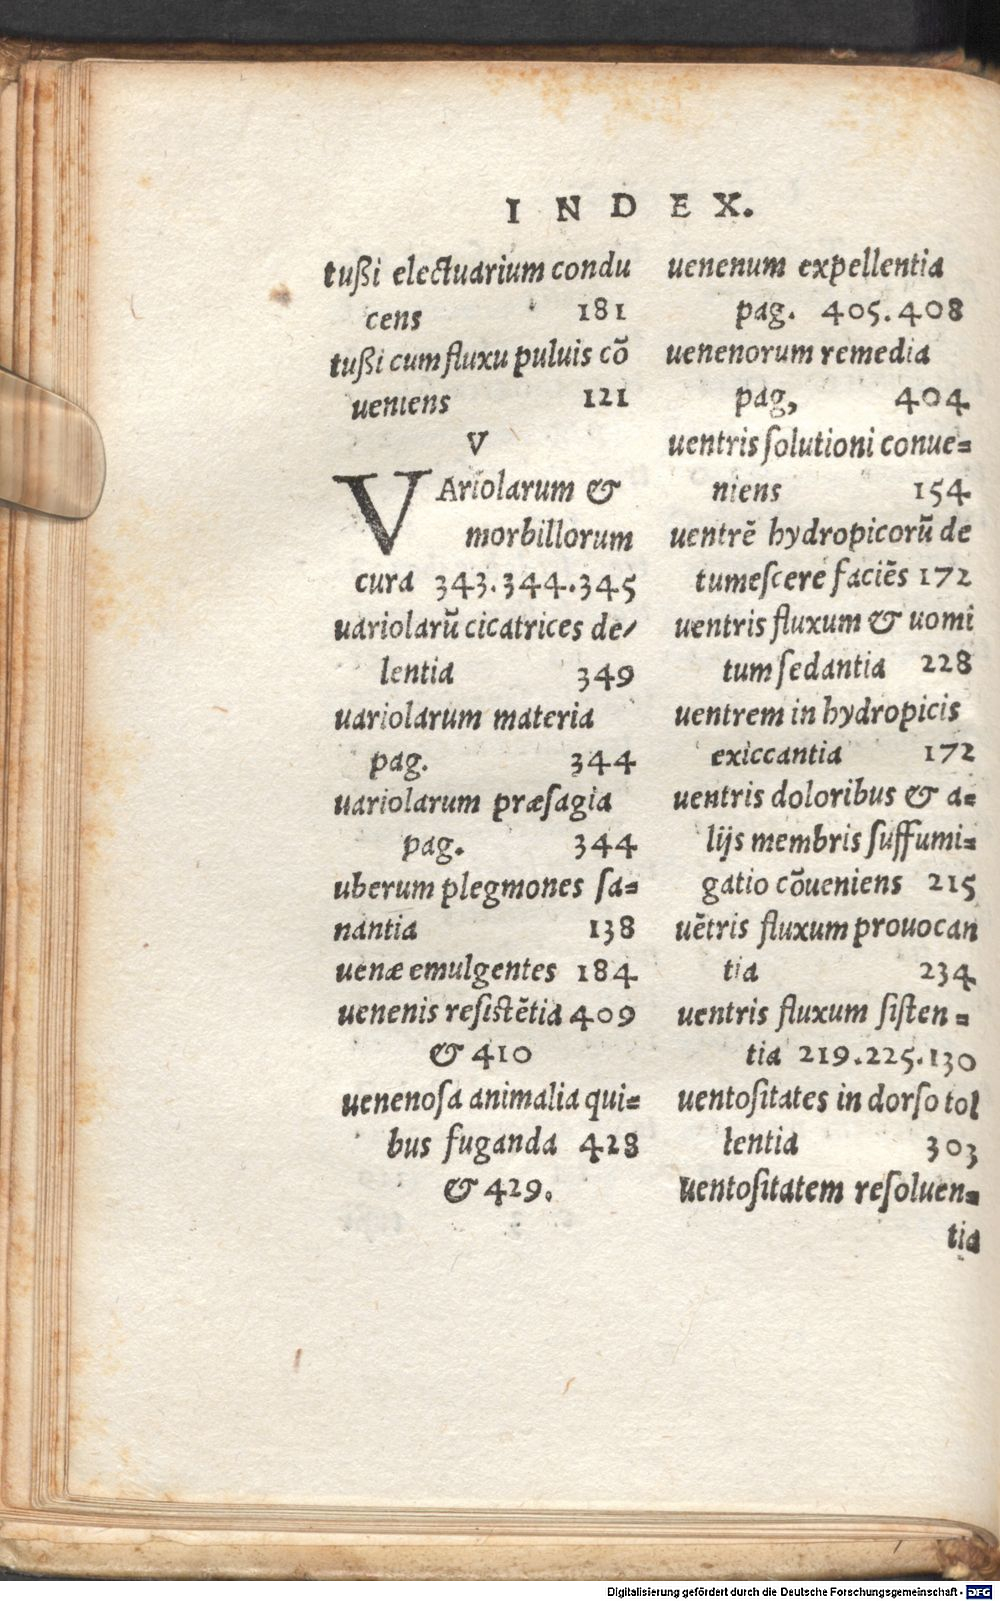 INDEX.
tußi electuarium condu
cens 181
tußi cum fluxu puluis cō
ueniens 121
V
VAriolarum &
morbillorum
cura 343.344.345
uariolarū cicatrices de/
lentia 349
uariolarum materia
pag. 344
uariolarum præſagia
pag. 344
uberum plegmones ſa=
nantia 138
uenæ emulgentes 184
uenenis reſiſtētia 409
& 410
uenenoſa animalia qui=
bus fuganda 428
& 429.
uenenum expellentia
pag. 405.408
uenenorum remedia
pag, 404
uentris ſolutioni conue=
niens 154
uentrē hydropicorū de
tumeſcere faciēs 172
uentris fluxum & uomi
tum ſedantia 228
uentrem in hydropicis
exiccantia 172
uentris doloribus & a=
lijs membris ſuffumi=
gatio cōueniens 215
uētris fluxum prouocan
tia 234
uentris fluxum ſiſten=
tia 219.225.130
uentoſitates in dorſo tol
lentia 303
uentoſitatem reſoluen=
tia
Digitalisierung gefördert durch die Deutsche Forschungsgemeinschaft - DFG